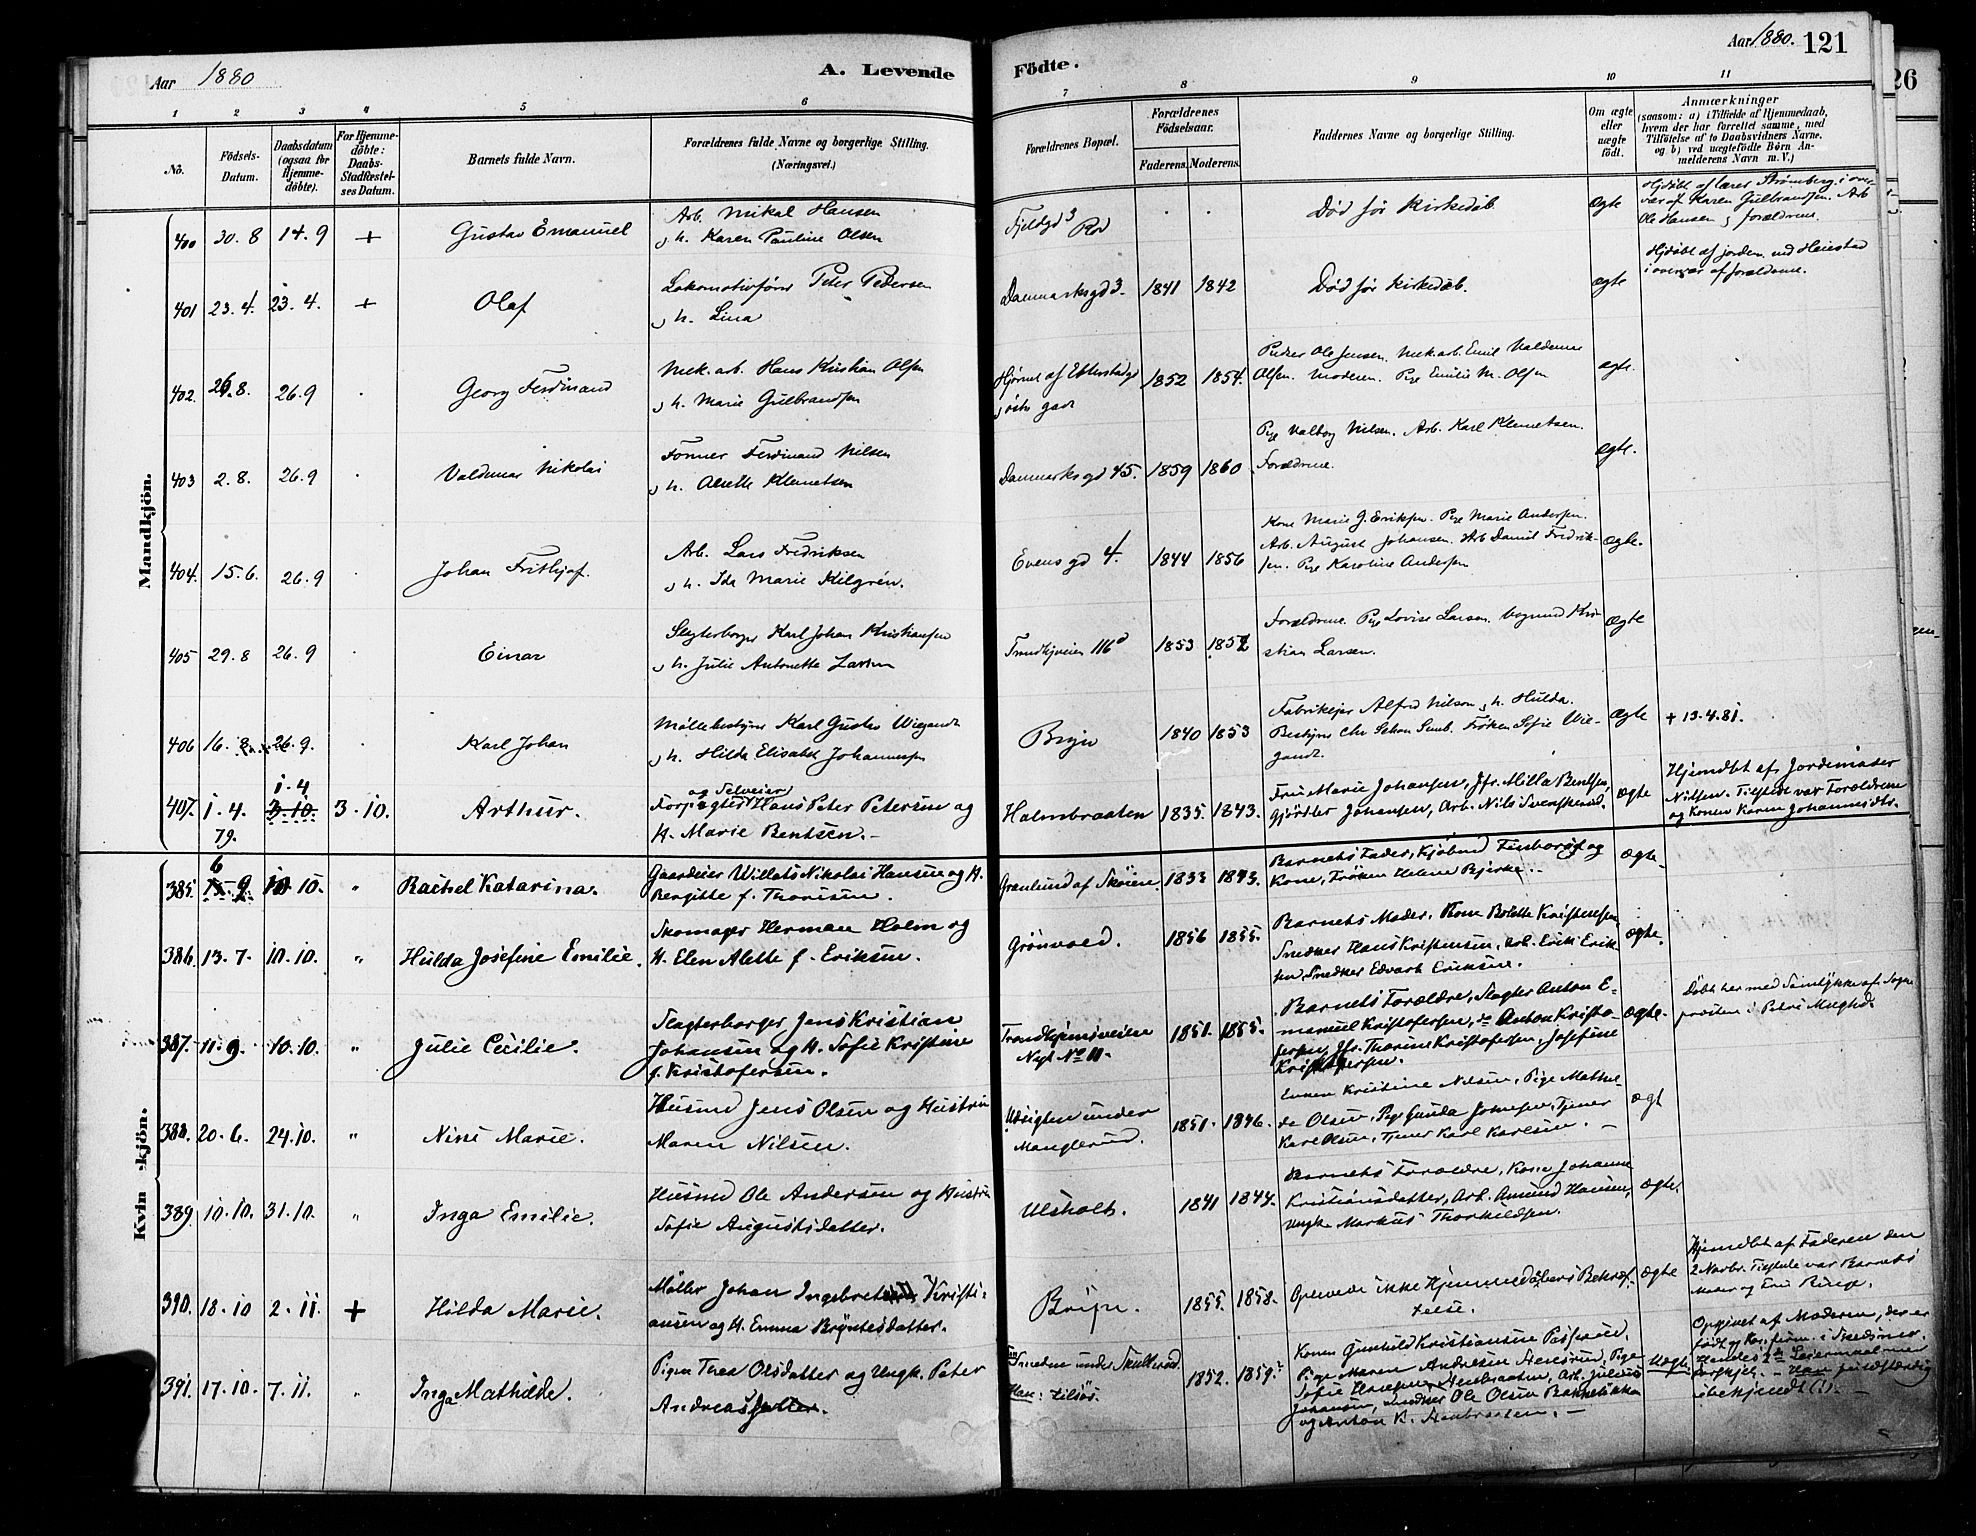 Aar 1880
A. Levende
Födte.
Aar 1880.
121
26
1 2 3 4 5 6 7 8 9 10 11
No.
Födsels-
Datum.
Daabsdatum
(ogsaa for
Hjemme-
döbte).
For Hjemme-
döbte:
Daabs-
Stadfæstel-
ses Datum.
Barnets fulde Navn.
Forældrenes fulde Navne og borgerlige Stilling.
(Næringsvei.)
Forældrenes Bopæl.
Forældrenes
Födselsaar.
Faderens. Moderens.
Faddernes Navne og borgerlige Stilling.
Om ægte
eller
uægte
födt.
Anmærkninger
(saasom: a) i Tilfælde af Hjemmedaab,
hvem der har forrettet samme, med
Tilföielse af to Daabsvidners Navne,
og b) ved uægtefödte Börn An-
melderens Navn m. V.)
Mandkjön.
400 30.8 14.9 + Gustav Emanuel
Arb. Mikal Hansen
h. Karen Pauline Olsen
Død før Kirkedåb
ægte
Ole Hansen forældrene
401 23.4. 23.4. + Olaf
Lokomotivfører Peter Pedersen
h. Lina
Danmarksgd 3 1841 1842
Død før Kirkedåb.
ægte
i overvær af forældrene.
402. 26.8. 26.9 Georg Ferdinand
Mek. arb. Hans Kristian Olsen
h. Marie Gulbrandsen
Hjørnet af
1852 1854.
Ole Jensen. Mek. arb. Emil Valdemar
Olsen. Moderen. Pige Emilie M. Olsen
ægte.
403 2.8. 26.9 Valdemar Nikolai
Former Ferdinand Nilsen
h. Alette Klemetsen
Danmarksgd 45. 1859 1860
Pige Valborg Nilsen. Arb. Karl Klemetsen.
Forældrene.
ægte.
404. 15.6. 26.9 Johan Frithjof.
Arb. Lars Fredriksen
h. Ida Marie Kilgrén.
Evensgd 4. 1844 1856
Kone Marie G. Eriksen. Pige Marie Andersen.
Arb. August Johansen. Arb Daniel Fredrik-
sen. Pige Karoline Andersen
ægte.
405 29.8 26.9 Einar
Slagterborger Karl Johan Kristiansen
h. Julie Antonette Larsen
Trondhjveien 116d 1853 1852
Forældrene. Pige Lovise Larsen. Kri-
stian Larsen.
ægte
406 16.8. 26.9. Karl Johan
Møllebestyrer Karl Gustav Wiegandt
h. Hilda Elisabet Johannesen
Bryn 1840 1853
Alfred Nilsen h. Hulda.
Bestyrer Frøken Sofie Wie-
gandt.
ægte + 13.4.81.
407. 1.4. 79. 1.4 3.10. 3.10. Arthur.
og Selveier
Forpagter Hans Peter Petersen og
H. Marie Bentsen.-
Holmbraaten 1835. 1843.
Fru Marie Johansen, Jfr. Milla Bentsen,
Gjørtler Johansen, Arb. Nils
ægte
Hjemdbt af Jordemoder
Nilsen. Tilstede var Forældrene
og Konen Karen Johannesdtr.
Kvinkjön.
385. 6 9. 10.10. " Rachel Katarina.
Gaardeier Willats Nikolai Hansen og H.
Bergitte f. Thorisen.
Granlund af Skøien. 1833 1843.
Barnets Fader, Kjøbmd og
Kone, Frøken Helene Bjerke.-
ægte.
386. 13.7. 10.10. " Hulda Josefine Emilie.
Skomager Herman Holm og
H. Elen Alette f. Eriksen.
Grönvold. 1856 1855.
Barnets Moder, Kone Bolette Kristensen,
Snedker Hans Kristensen, Arb. Erik Erik-
sen, Snedker Edvart Eriksen.
ægte.
387. 11.9. 10.10. " Julie Cecilie.
Slagterborger Jens Kristian
Johansen og H. Sofie Kristine
f. Kristofersen.
Trondhjemsveien
Nyt No 11. 1851. 1855.
Barnets Forældre, Slagter Anton E-
manuel Kristofersen, do Anton Kristo-
fersen, Jfr. Thorine Kristofersen, Josefine
Kristofersen.
ægte.
Döbt her med Samtykke af Sogne-
præsten i Petri Meghd.
388. 20.6. 24.10. " Nini Marie.
Husmd Jens Olsen og Hustru
Maren Nilsen.
Udsigten under
Manglerud. 1851. 1846.
Enken Kristine Nilsen, Pige Mathil-
de Olsen, Pige Gunda Johnsen, Tjener
Karl Olsen, Tjener Karl Karlsen.-
ægt
389. 10.10. 31.10. " Inga Emilie.
Husmd Ole Andersen og Hustru
Sofie Augustsdatter.
Ulsholt. 1841 1844.
Barnets Forældre, Kone Johanne
Kristiansdatter, Arb. Amund Hansen,
Ungk. Markus Thorkildsen.
ægte.
390. 18.10 2.11. + Hilda Marie.
Møller Johan Ingebret Kristi-
ansen og H. Emma Bryntesdatter.
Bryn. 1855. 1858.
Oplevede ikke Hjemmedåbens Bekræf-
telse.
ægte
Hjemdbt af Faderen den
2 Novbr. Tilstede var Barnets
Moder og Emi Ringe.
391. 17.10. 7.11. " Inga Mathilde.
Pigen Thea Olsdatter og Ungk. Peter
Andreas
Sneden under Skullerud.
Han: 1852. 1859.
Konen Gunhild Kristiansen
Pige Maren Andresen Stensrud, Pige
Sofie Hansen Stenbraaten, Arb. Julius
Johansen, Snedker Ole Olsen Bakkeløkken
og Anton K. Stenbraaten.-
Uægte
Opgivet af Moderen, der er
født og Konfirm. i Skedsmo.
Hendes 2den Leiermaal med
forskjel.- Han
ubekjendt (?).-